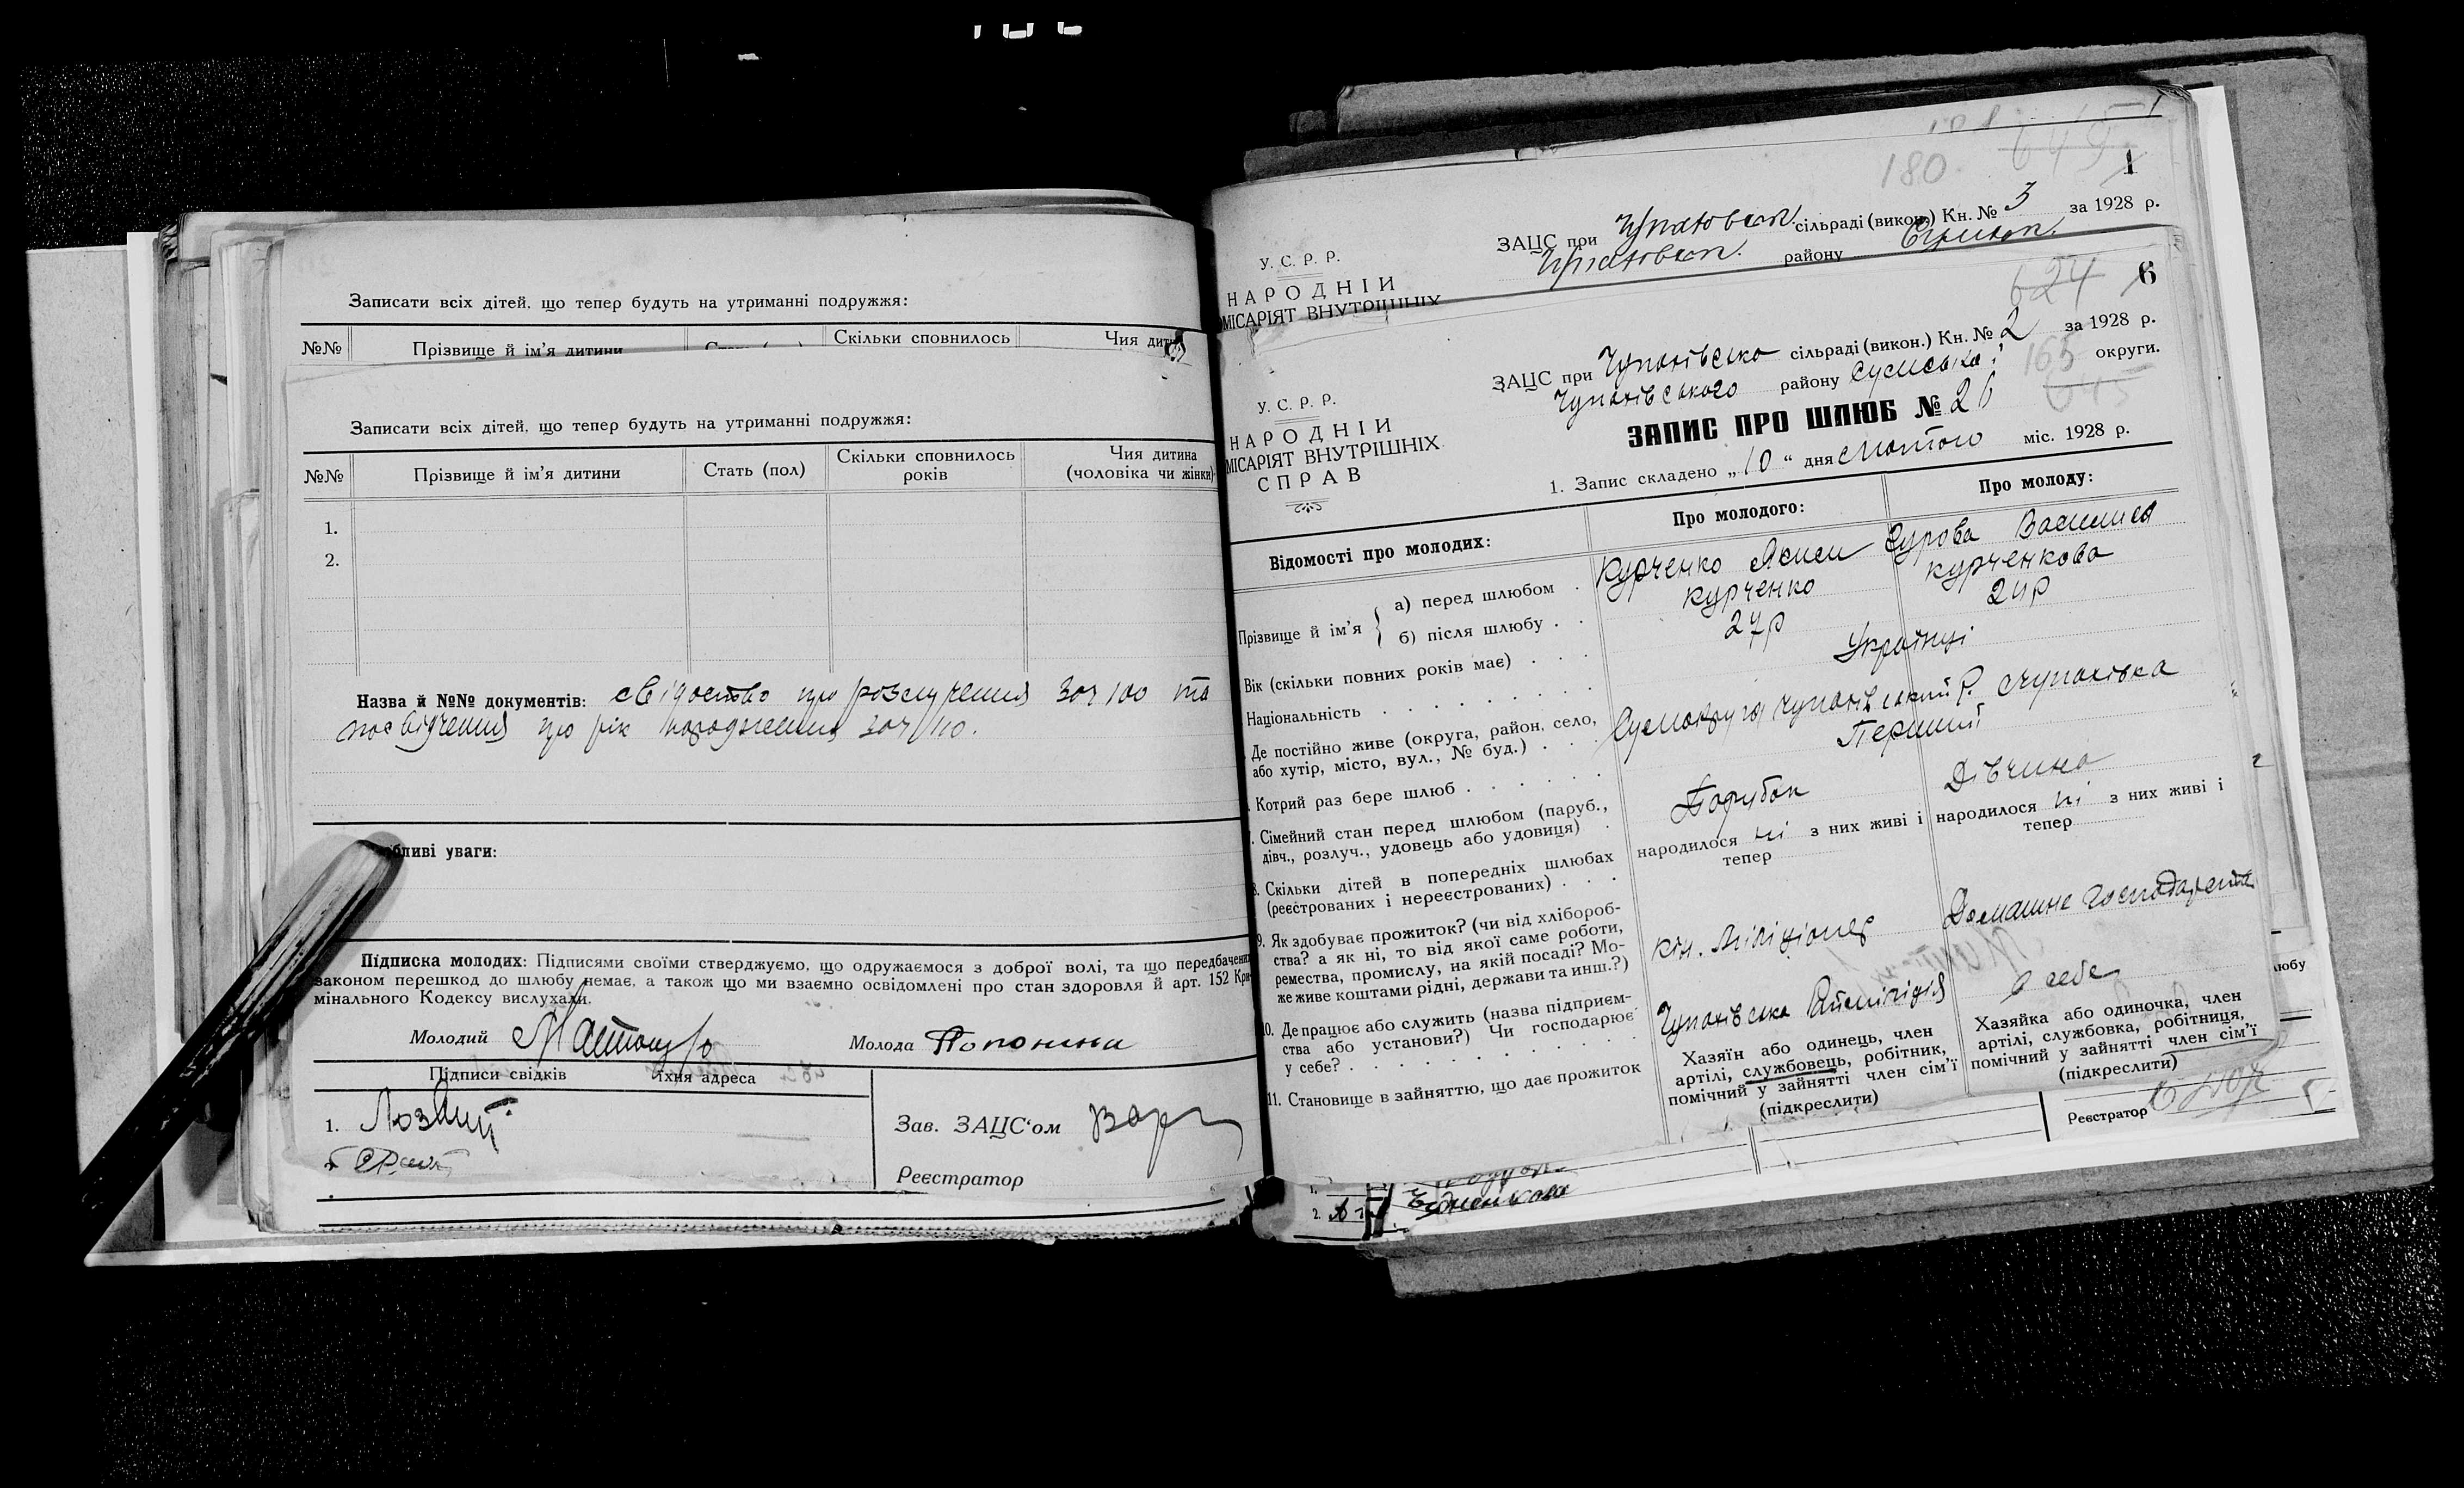 Записати всіх дітей, що тепер будуть на утриманні подружжя:
№№ Прізвище й ім'я дитини Скільки сповнилось Чия
Записати всіх дітей, що тепер будуть на утриманні подружжя:
№№ Прізвище й ім'я дитини Стать (пол) Скільки сповнилось років Чия дитина (чоловіка чи жінки)
1.
2.
Назва й №№ документів: свідоство про розлучення зач 100 та
посвідчення про рік народження зач 110.
бливі уваги:
Підписка молодих: Підписями своїми стверджуємо, що одружаємося з доброї волі, та що передбачених
законом перешкод до шлюбу немає, а також що ми взаємно освідомлені про стан здоровля й арт. 152 Кри-
мінального Кодексу вислухали.
Молодий Молода
Підписи свідків їхня адреса
1.
Зав. ЗАЦС'ом
Реєстратор
180
1
ЗАЦС при сільраді (викон.) Кн. № 3 за 1928 р.
району
У. С. Р. Р.
НАРОДНІЙ
МІСАРІЯТ ВНУТРІШНІХ
624 6
ЗАЦС при Чупахівська сільраді (викон.) Кн. № 2 за 1928 р.
Чупахівського району Сумської 165 округи.
У. С. Р. Р.
НАРОДНІЙ
МІСАРІЯТ ВНУТРІШНІХ
СПРАВ
ЗАПИС ПРО ШЛЮБ № 26
1. Запис складено „10“ дня лютого міс. 1928 р.
Відомості про молодих: Про молодого: Про молоду:
Прізвище й ім'я { а) перед шлюбом . Курченко Сурова Василиса
б) після шлюбу . . Курченко Курченкова
Вік (скільки повних років має) . . . 27р 24р
Національність . . . . . . . . Українці
Де постійно живе (округа, район, село,
або хутір, місто, вул., № буд.) . . . Сумокруга Чупахівський Р. с Чупахівка
Котрий раз бере шлюб . . . . . . Перший
Сімейний стан перед шлюбом (паруб.,
дівч., розлуч., удовець або удовиця) . Парубок Дівчина
8. Скільки дітей в попередніх шлюбах
(реєстрованих і нереєстрованих) . . .
народилося ні з них живі і
тепер
народилося ні з них живі і
тепер
9. Як здобуває прожиток? (чи від хлібороб-
ства? а як ні, то від якої саме роботи,
ремества, промислу, на якій посаді? Мо-
же живе коштами рідні, держави та инш.?)
кін. Міліціонер
Домашнє господарство
10. Де працює або служить (назва підприєм-
ства або установи?) Чи господарює
у себе? . . . . . . . . . . .
Чупахівська Райміліція
в себе
11. Становище в зайняттю, що дає прожиток
Хазяїн або одинець, член
артілі, службовець, робітник,
помічний у зайнятті член сім'ї
(підкреслити)
Хазяйка або одиночка, член
артілі, службовка, робітниця,
помічний у зайнятті член сім'ї
(підкреслити)
любу
Реєстратор
1.
2.